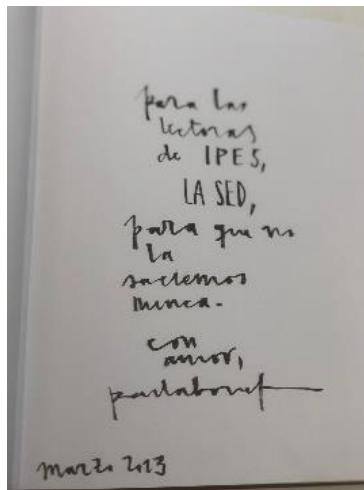 para las
lectoras
de IPES,
LA SED,
para que no
la
saciemos
nunca.
con
amor,
paulabonet
marzo 2023